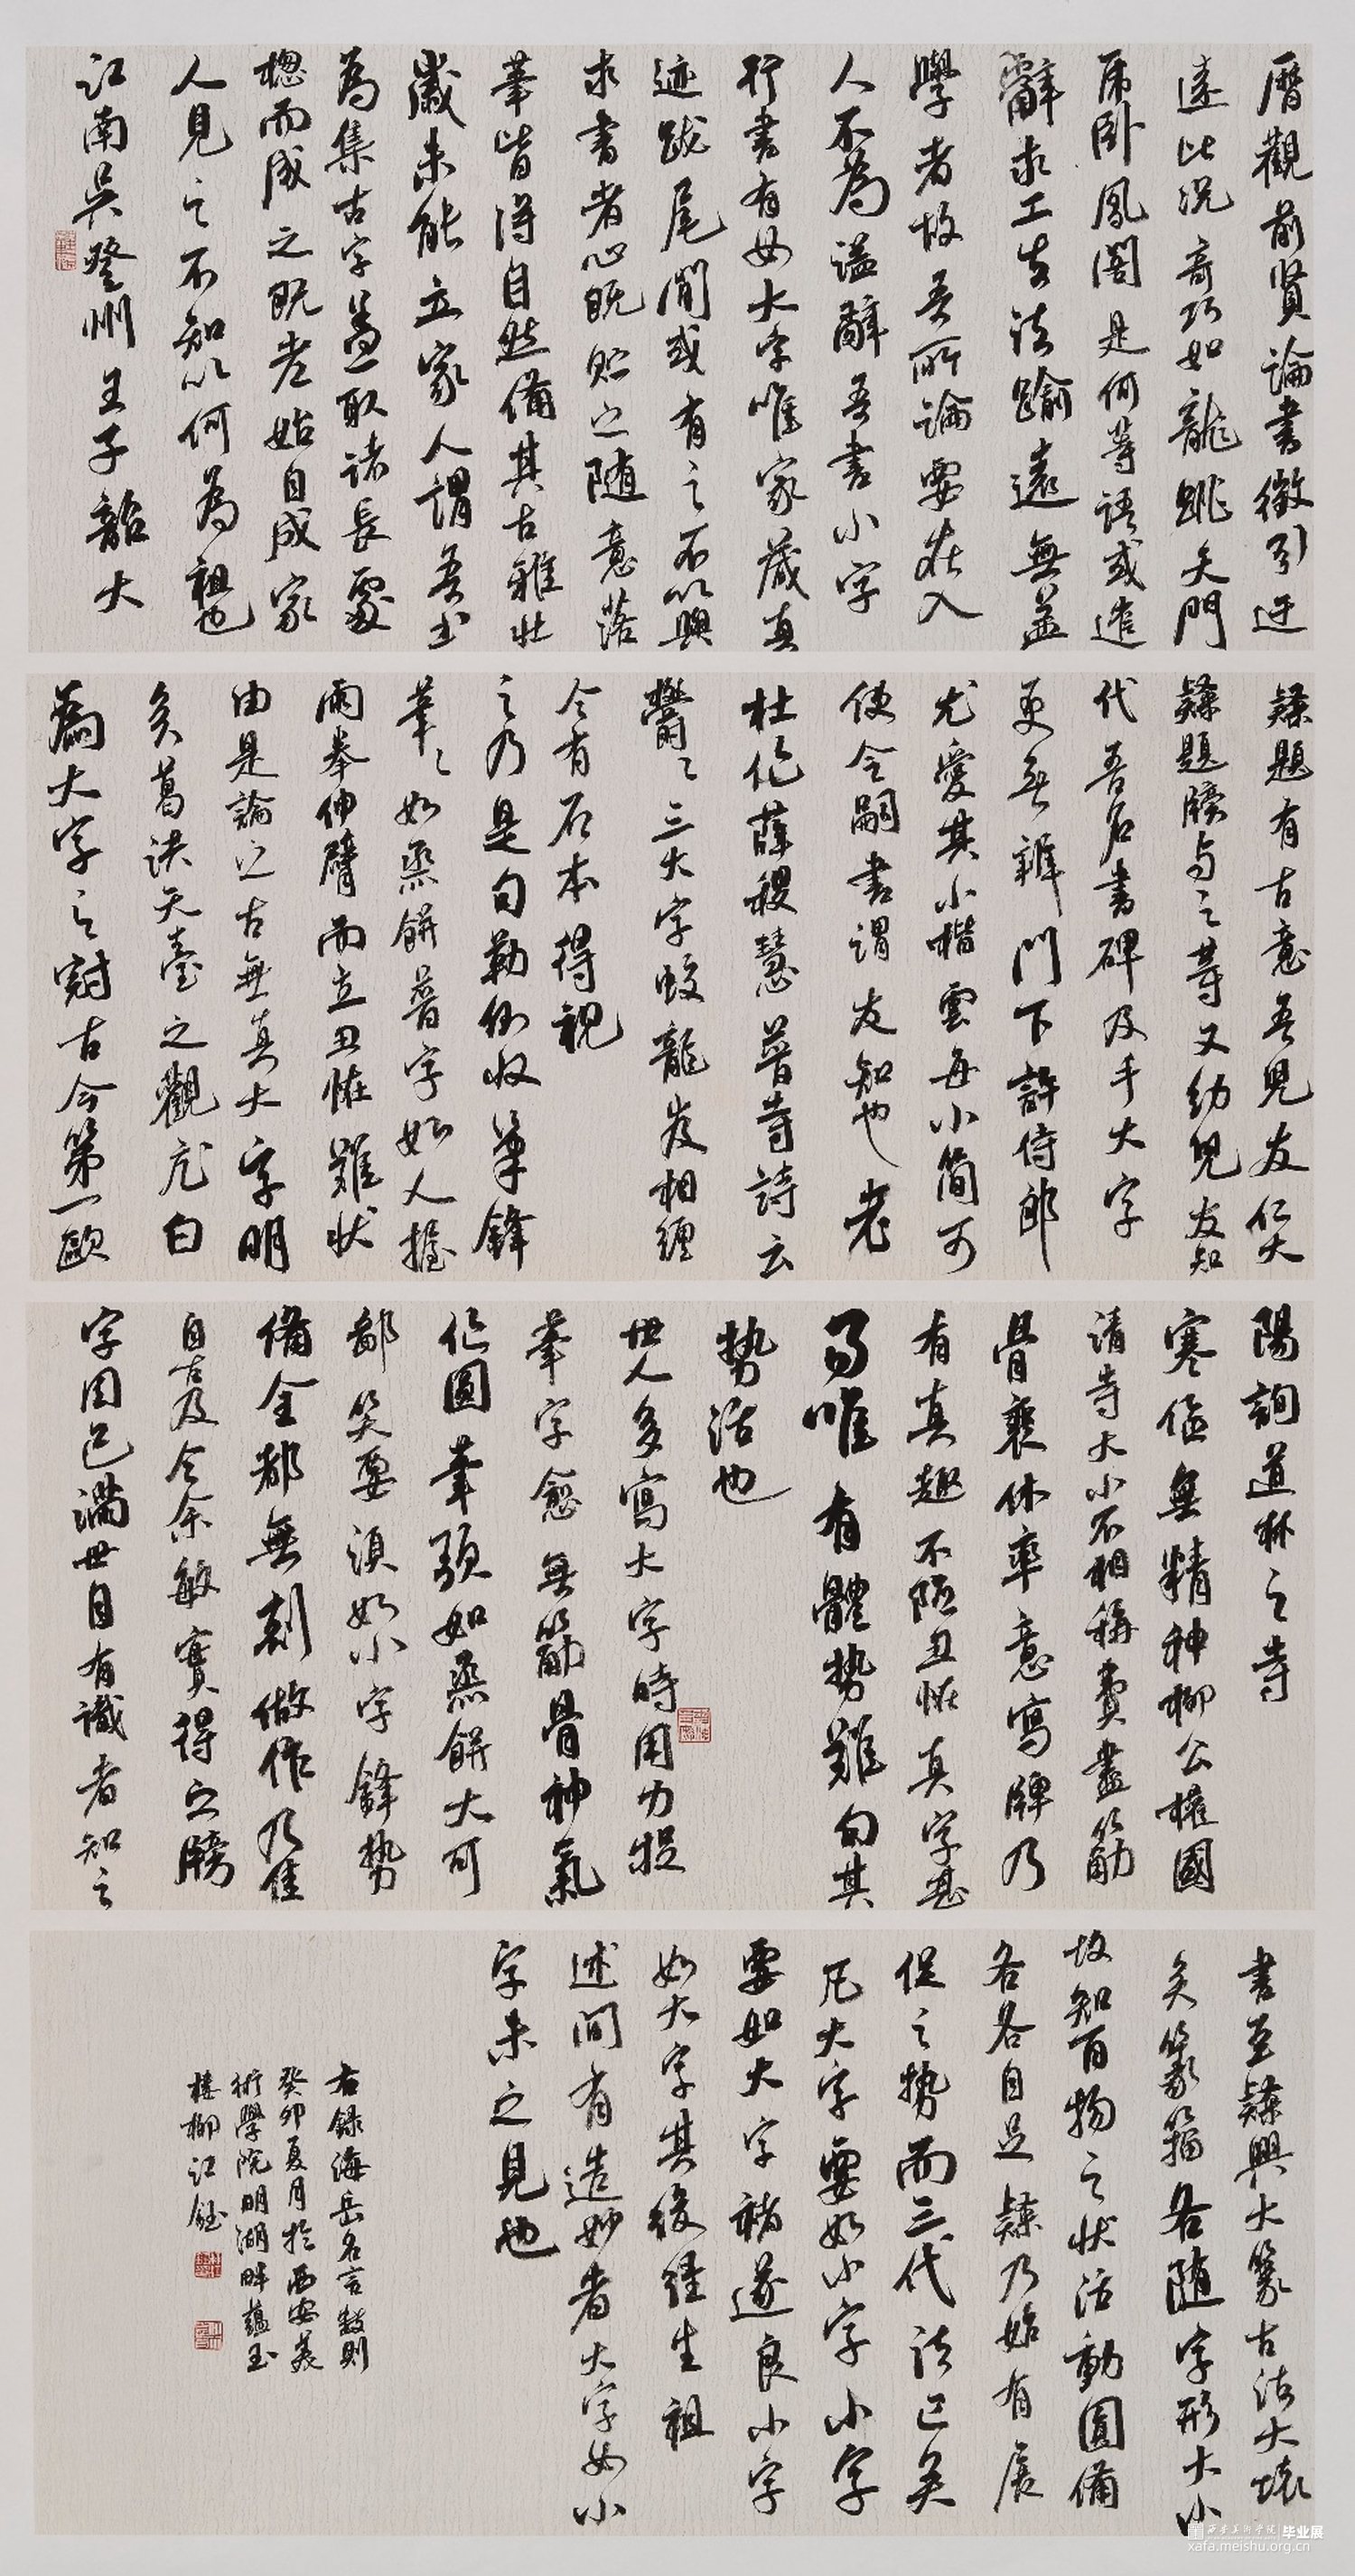 曆觀前賢論書徵引迂
遠比况奇巧如龍跳天門
虎卧鳳閣是何等語或遣
辭求工去法踰遠無益
學者故吾所論要在入
人不為溢辭吾書小字
行書有如大字唯家藏真
迹跋尾間或有之不以與
求書者心既貯之随意落
筆皆得自然備其古雅壯
歲未能立家人謂吾书
為集古字盖取諸長處
揔而成之既老始自成家
人見之不知以何為祖也
江南吳登州王子韶大
隸題有古意吾兒友仁大
隸題牓与之等又幼兒友知
代吾名書碑及手大字
更無辨門下許侍郎
尤愛其小楷雲每小简可
使令嗣書謂友知也老
杜作薛稷慧普寺詩云
鬱〻三大字蛟龍岌相纏
今有石本得視
之乃是勾勒倒收筆鋒
筆〻如蒸餅普字如人握
兩拳伸臂而立丑怪難狀
由是論之古無真大字明
矣葛洪天臺之觀飛白
為大字之冠古今第一歐
陽詢道林之寺
寒儉無精神柳公權國
清寺大小不相稱費盡筋
骨裴休率意寫牌乃
有真趣不陷丑怪真字甚
易唯有體勢難勾其
勢活也
世人多寫大字時用力捉
筆字愈無筋骨神氣
作圓筆頭如蒸餅大可
鄙笑要須如小字鋒勢
備全都無刻做作乃佳
自古及今余敏實得之牓
字固已满世自有識者知之
書至隸興大篆古法大壞
矣篆籀各随字形大小
故知百物之狀活動圓備
各各自足隸乃始有展
促之勢而三代法已矣
凡大字要如小字小字
要如大字褚遂良小字
如大字其後經生祖
述間有造妙者大字如小
字未之見也
右錄海岳名言数則
癸卯夏月於西安美
術學院明湖畔蕴玉
楼柳江鈺
西安美术学院 毕业展
xafa.meishu.org.cn